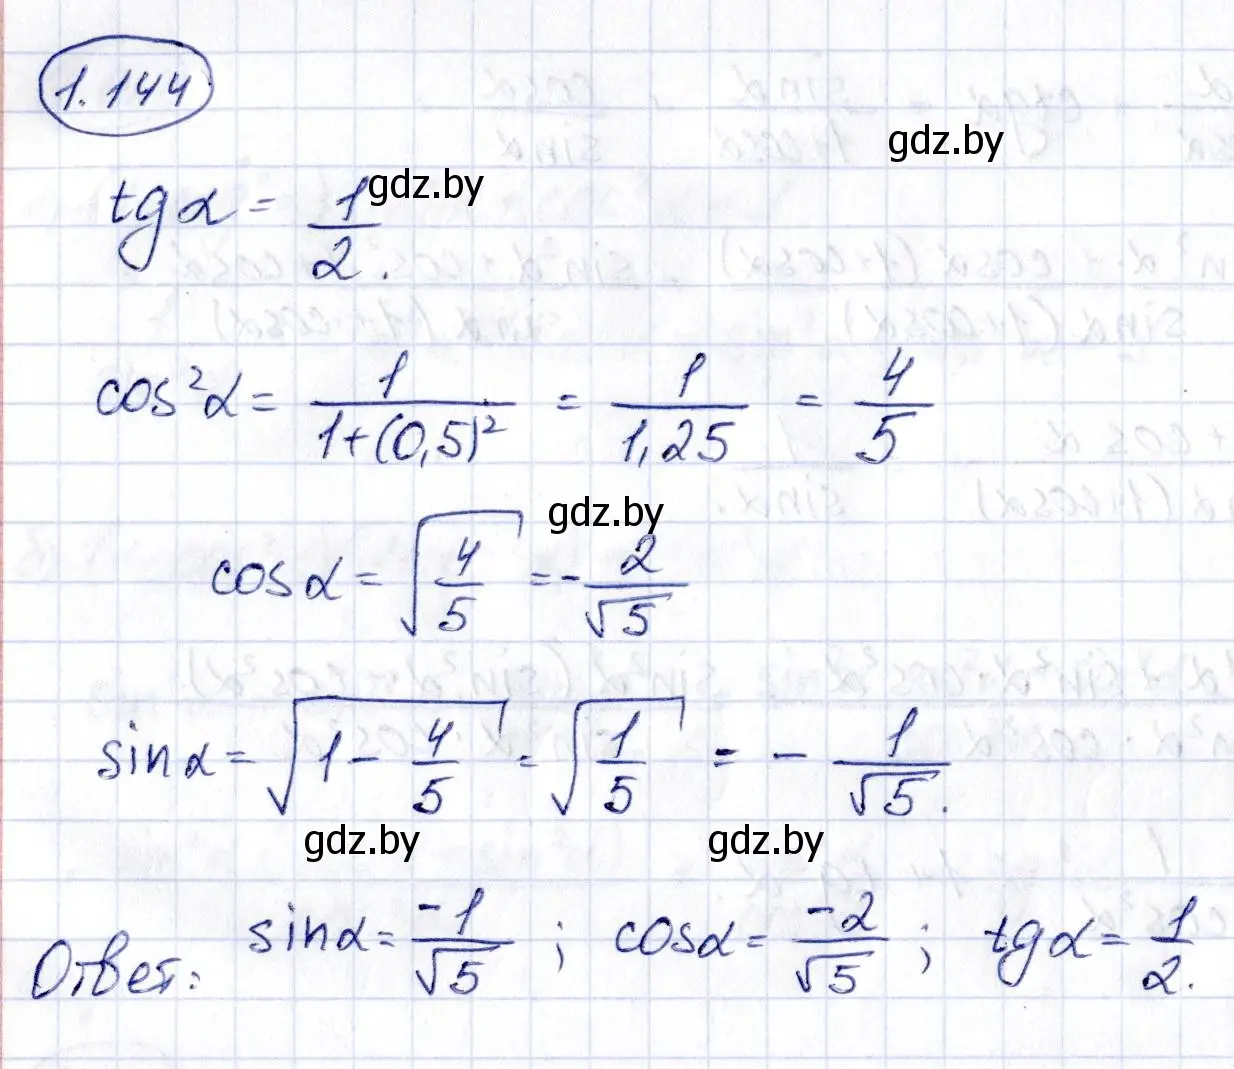 1.144
gdz.by
tg α = 1/2. gdz.by
cos²α = 1/(1+(0,5)²) = 1/1,25 = 4/5
gdz.by
cos α = √(4/5) = -2/√5
sin α = √(1 - 4/5) = √(1/5) = - 1/√5.
gdz.by gdz.by
Ответ: sin α = -1/√5 ; cos α = -2/√5 ; tg α = 1/2.